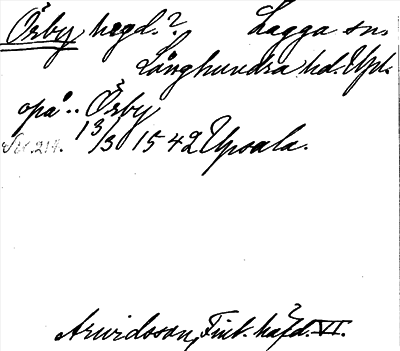 Örby hegd.? Lagga sn.
Långhundra hd. Upl.
opå.. Örby
13/3 1542 Upsala.
Arvidsson, Finl. häfd. VI.